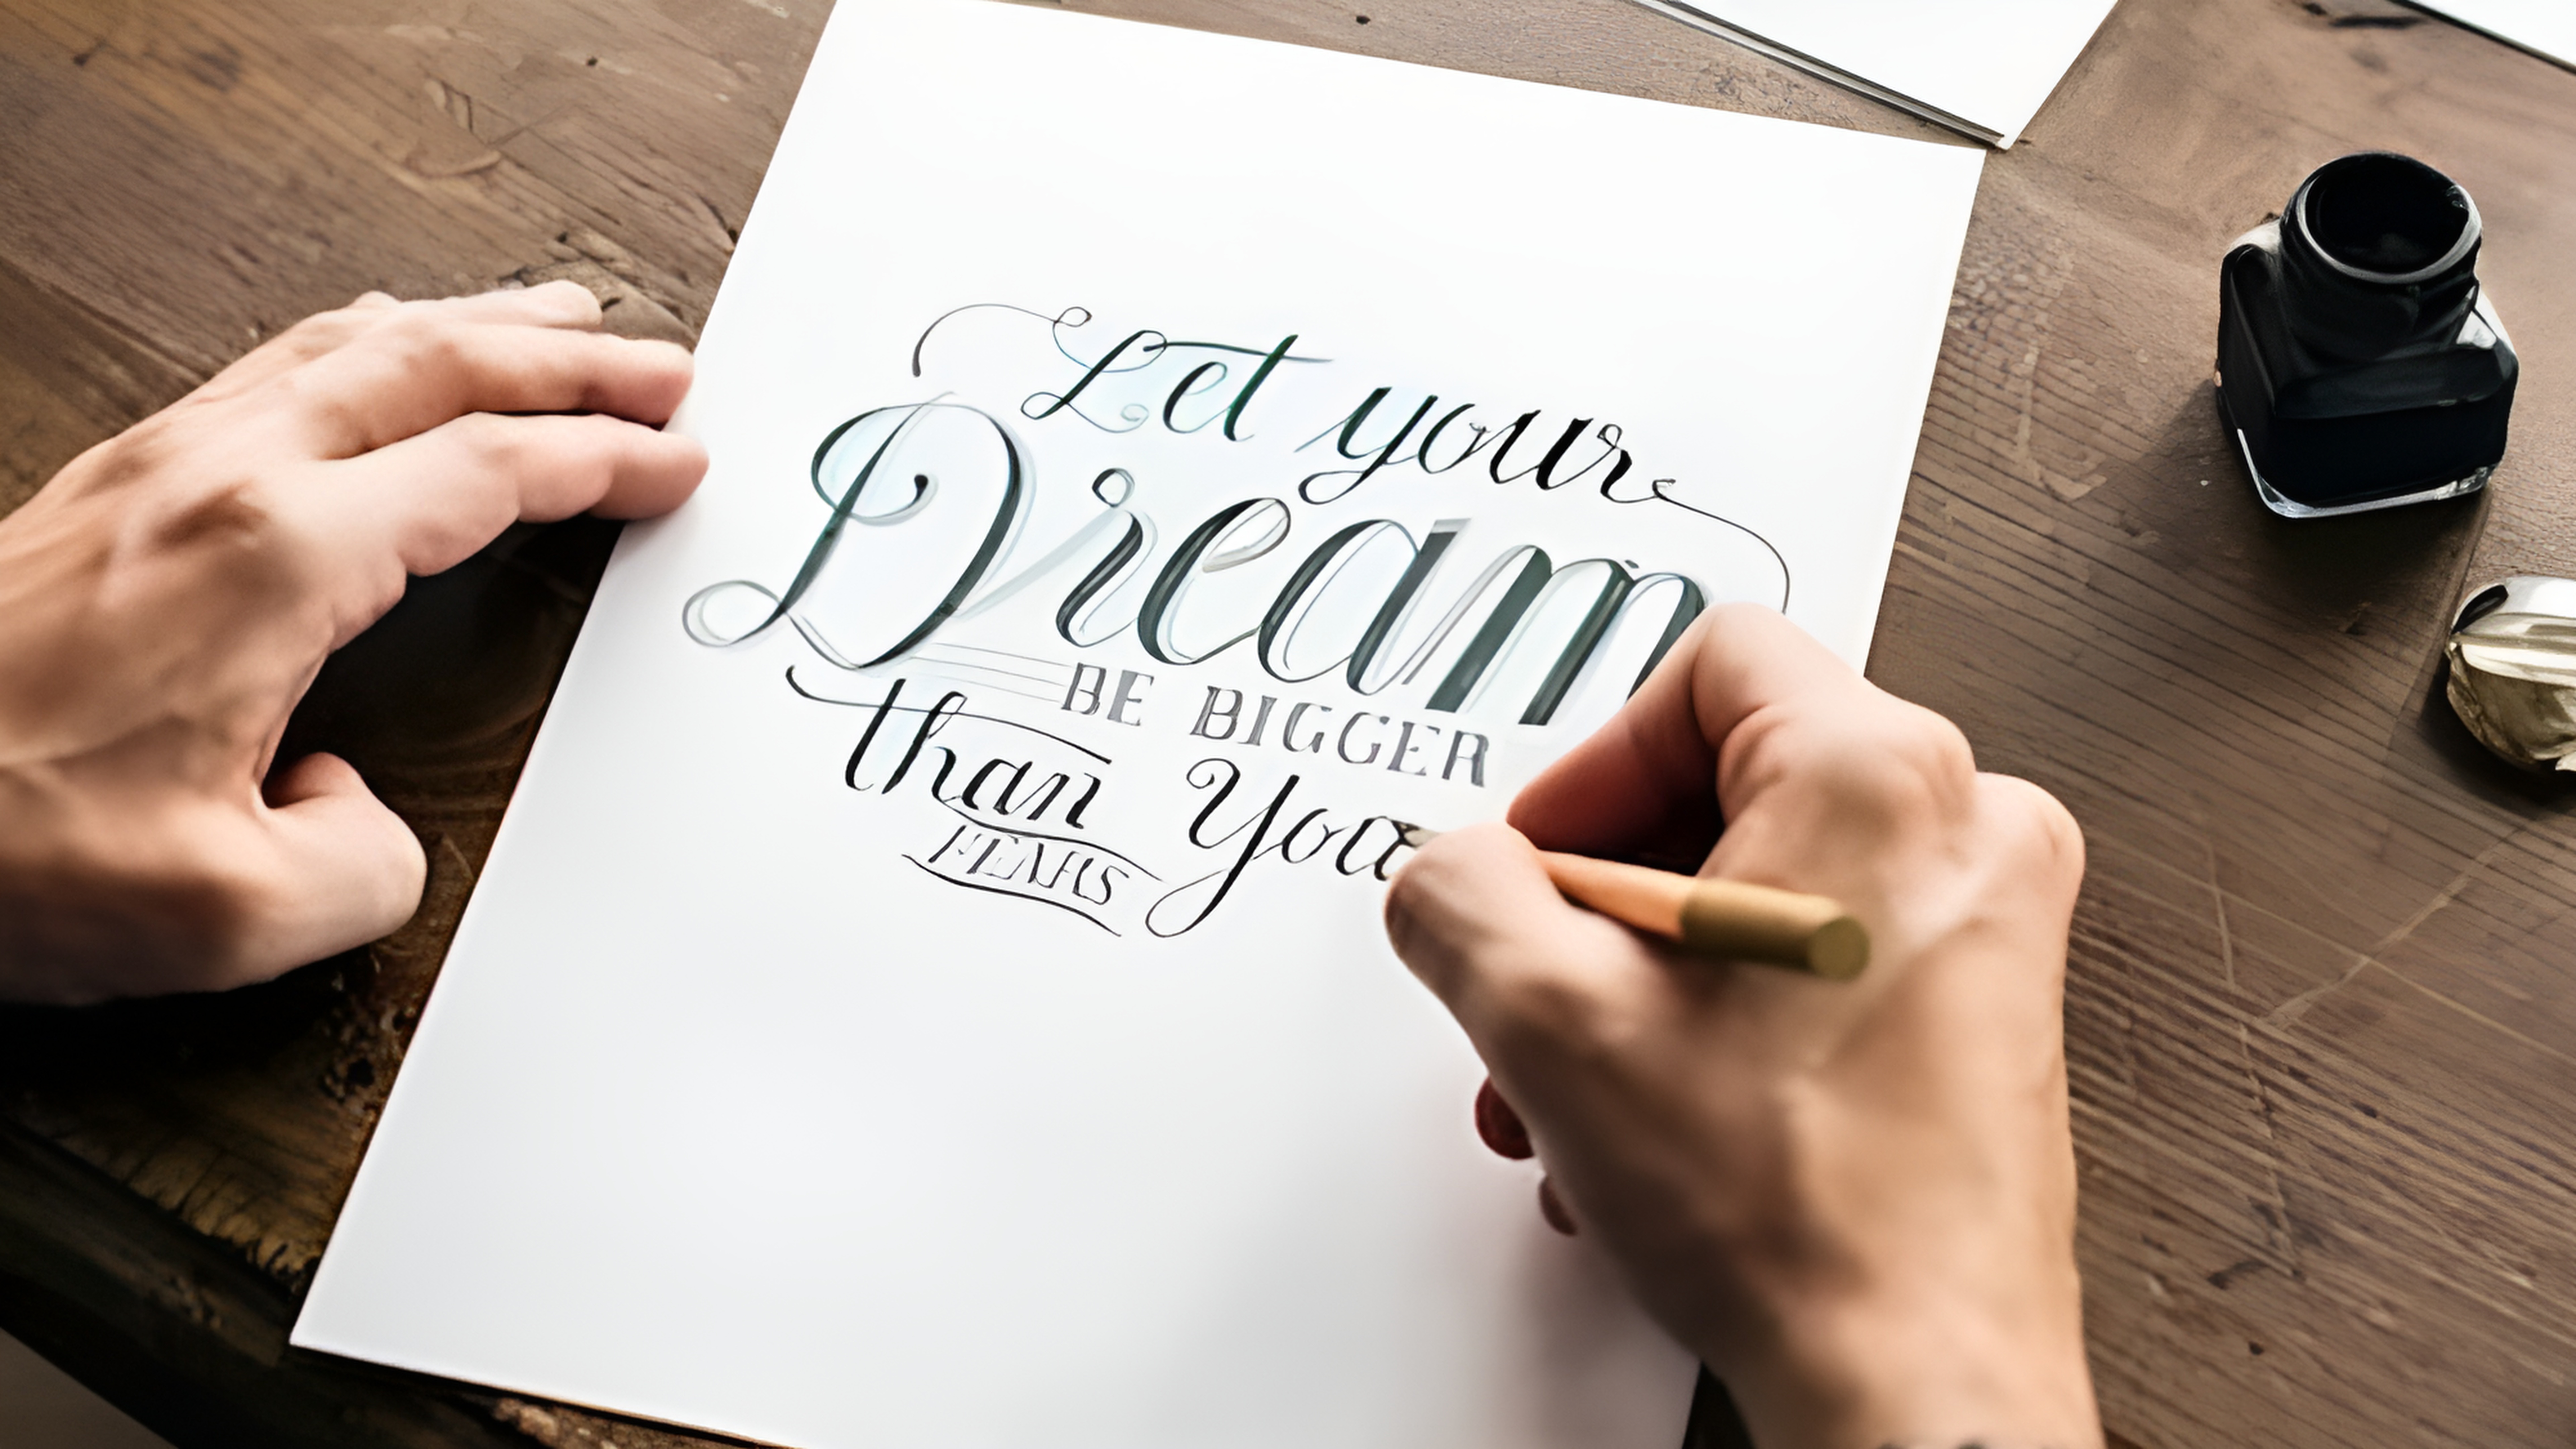 Let your
Dream
BE BIGGER
than You
FEARS